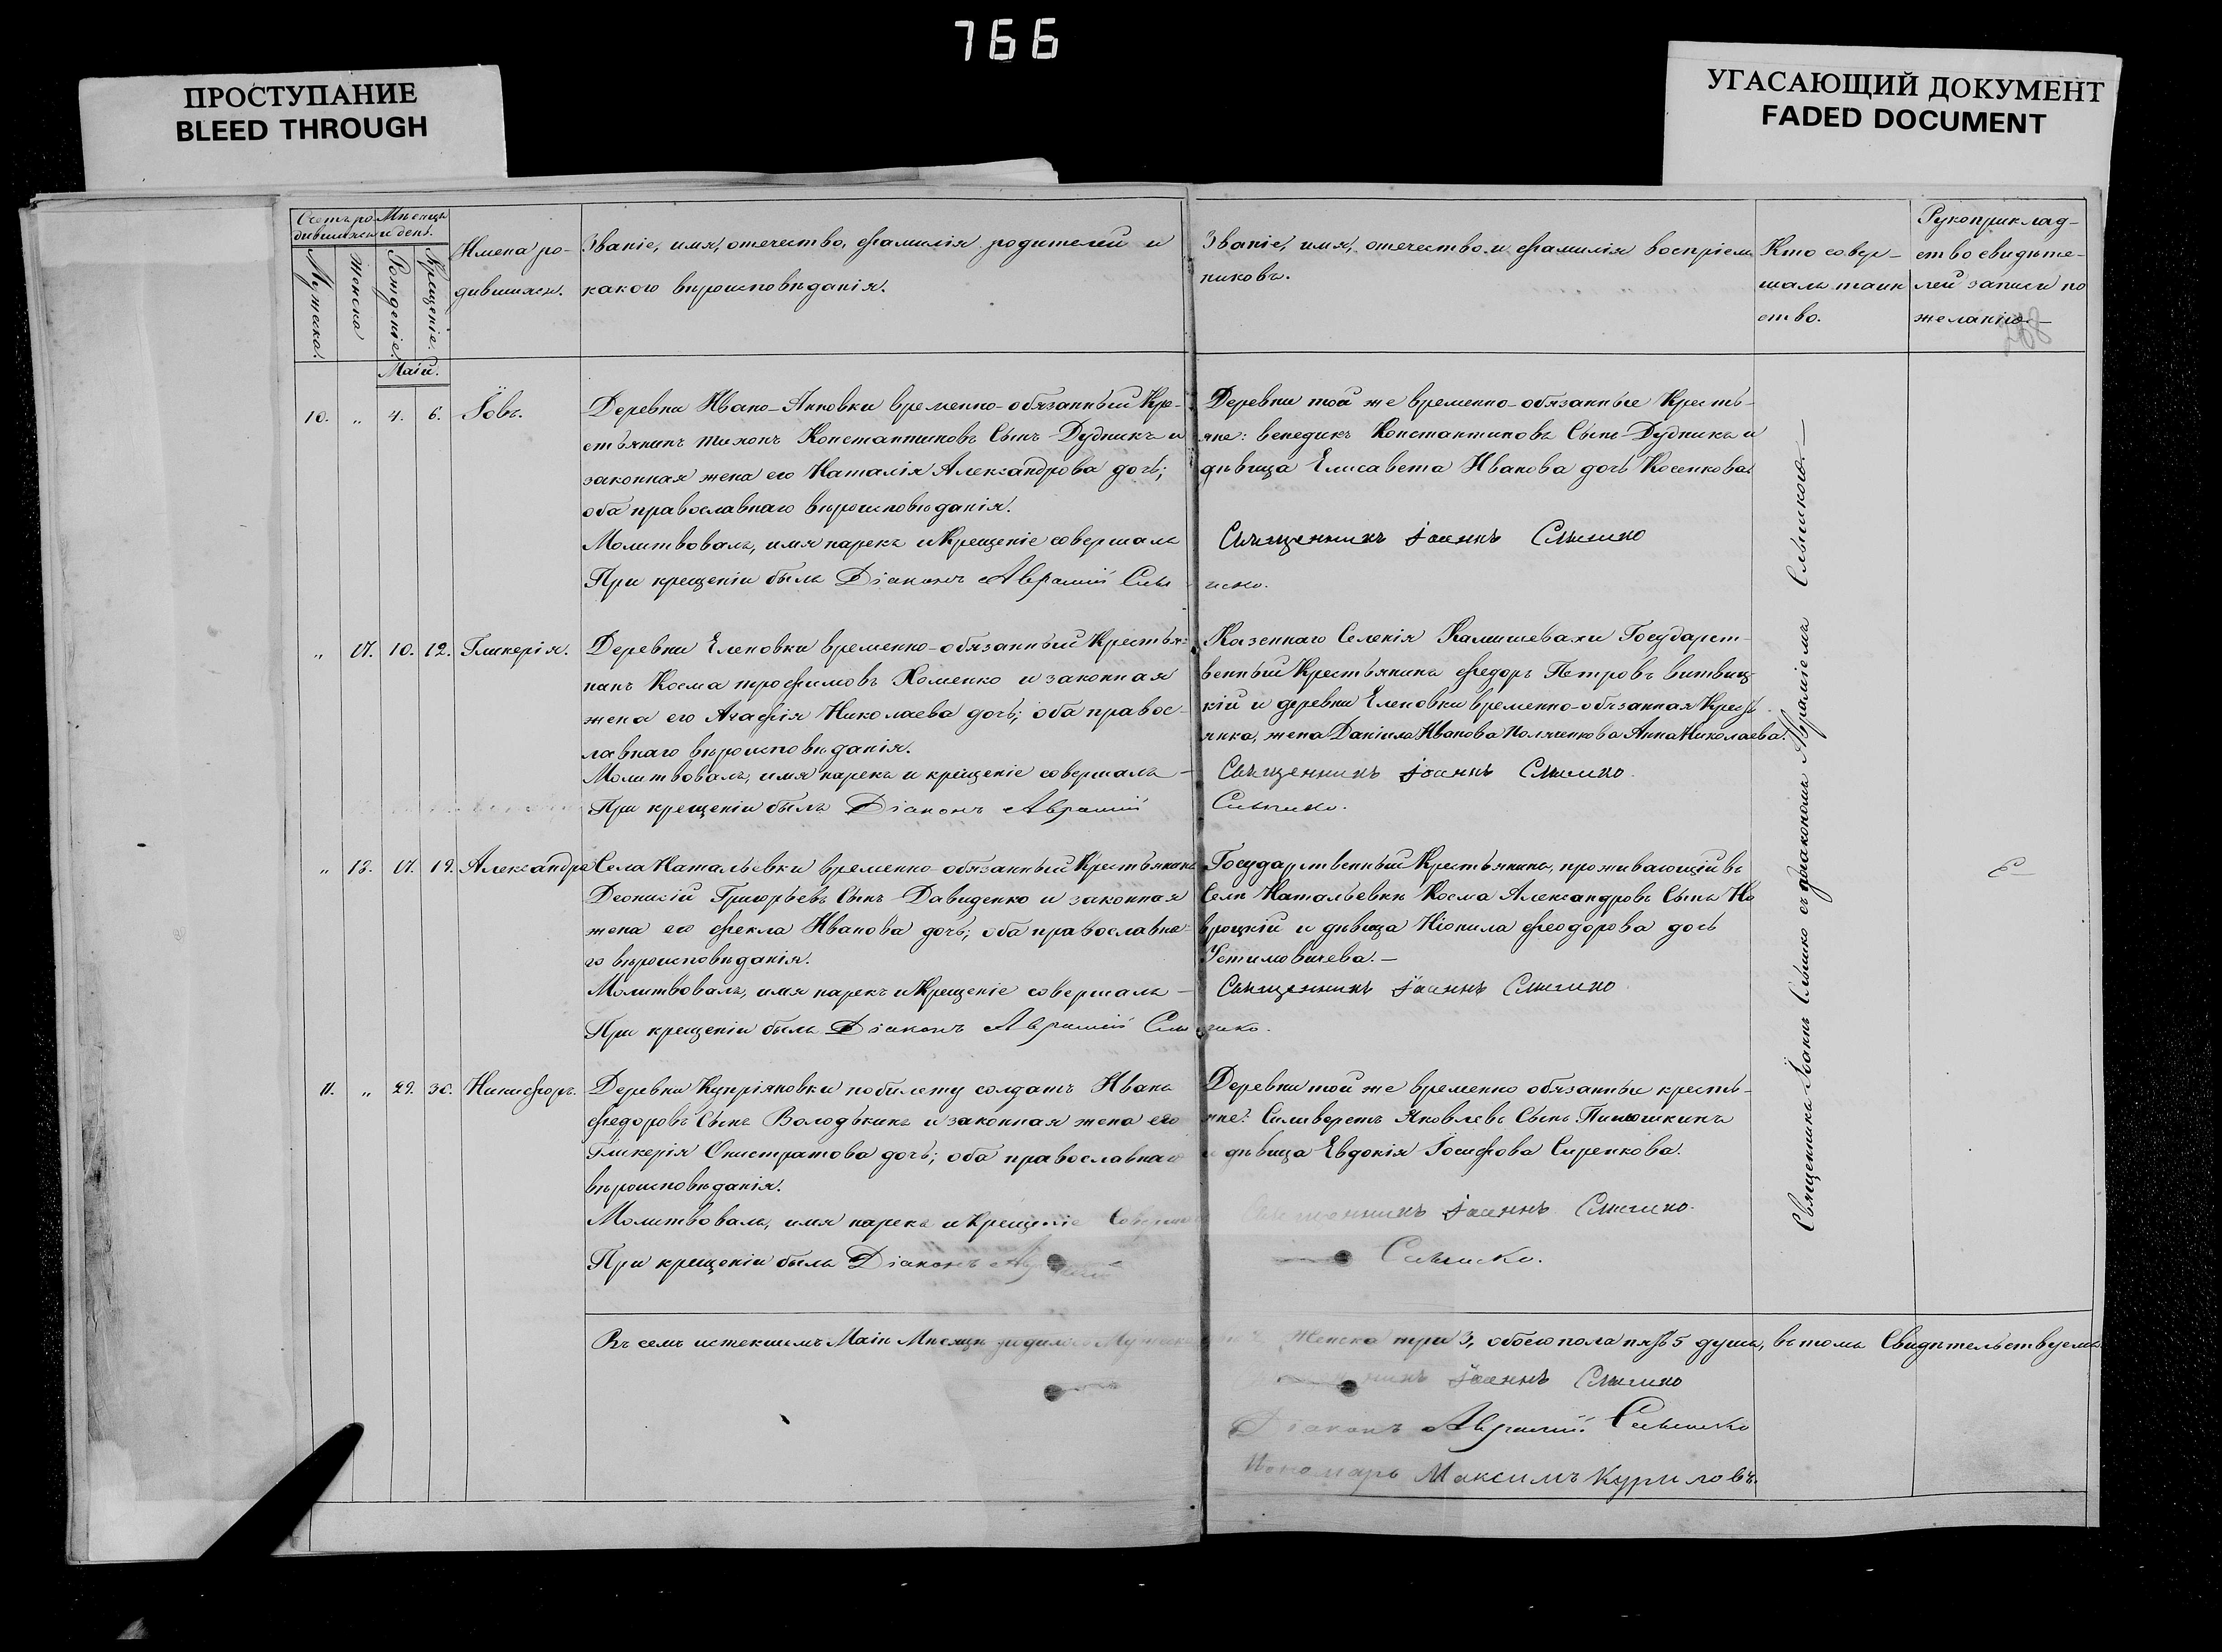 766
ПРОСТУПАНИЕ
BLEED THROUGH
УГАСАЮЩИЙ ДОКУМЕНТ
FADED DOCUMENT
Счетъ ро-
дившихся
Мѣсяцъ
и день.
Мужеска.
Женска
Рожденіе.
Крещеніе.
Имена ро-
дившихся.
Званіе, имя, отечество, фамилія родителей и
какого вѣроисповѣданія.
Званіе, имя, отечество и фамилія воспріем
никовъ.
Кто совер-
шалъ таин
ство.
Рукоприклад-
ство свидѣте-
лей записи по
желанію.
Маій.
10. „ 4. 6. Іовъ.
Деревни Ивано-Анновки временно-обязанный Кре-
стьянинъ Тихонъ Константиновъ Сынъ Дудникъ и
законная жена его Наталія Александрова дочь;
оба православнаго вѣроисповѣданія.
Молитвовалъ, имя нарекъ и Крещеніе совершалъ
При крещеніи былъ Діаконъ Аврамій Слы
Деревни той же временно-обязанные Кресть-
яне: Венедикъ Константиновъ Сынъ Дудникъ и
дѣвица Елисавета Иванова дочь Косенкова
Священникъ Іоаннъ Слышко
шко.
„ 17. 10. 12. Гликерія.
Деревни Еленовки временно-обязанный Крестья-
нинъ Косма Трофимовъ Хоменко и законная
жена его Агафія Николаева дочь; оба правос-
лавнаго вѣроисповѣданія.
Молитвовалъ, имя нарекъ и крещеніе совершалъ
При крещеніи былъ Діаконъ Аврамій
Казеннаго Селенія Камышевахи Государст-
венный Крестьянинъ Федоръ Петровъ Витвиц
кій и деревни Еленовки временно-обязанная Кресть
янка, жена Даніила Иванова Полченкова Анна Николаева.
Священникъ Іоаннъ Слышко.
Слышко.
„ 18. 17. 19. Александра
Села Натальевки временно-обязанный Крестьянинъ
Деонисій Григорьевъ Сынъ Давиденко и законная
жена его Фекла Иванова дочь; оба православна-
го вѣроисповѣданія.
Молитвовалъ, имя нарекъ и Крещеніе совершалъ
При крещеніи былъ Діаконъ Аврамій Слы
Государственный Крестьянинъ, проживающій въ
Селѣ Натальевкѣ Косма Александровъ Сынъ На
вроцкій и дѣвица Неонила Феодорова дочь
Устимовичева.
Священникъ Іоаннъ Слышко.
шко.
11. „ 29. 30. Никифоръ.
Деревни Купріяновки по билету солдатъ Иванъ
Федоровъ Сынъ Володькинъ и законная жена его
Гликерія Онистратова дочь; оба православнаго
вѣроисповѣданія.
Молитвовалъ, имя нарекъ и Крещеніе
При крещеніи былъ Діаконъ
Деревни той же временно обязанные кресть-
яне: Силиверстъ Яковлевъ Сынъ Пинюшкинъ
и дѣвица Евдокія Іосифова Сиренкова.
Священникъ Іоаннъ Слышко.
Слышко.
Священникъ Іоаннъ Слышко съ діакономъ Аврамиемъ Слышкою.
Въ семъ истекшемъ Маіи Мѣсяцѣ родилось
Женска три 3, обоего пола пять 5 душъ, въ томъ Свидѣтельствуемъ
Іоаннъ Слышко
Діаконъ Аврамій Слышко
Пономарь Максимъ Куриловъ.